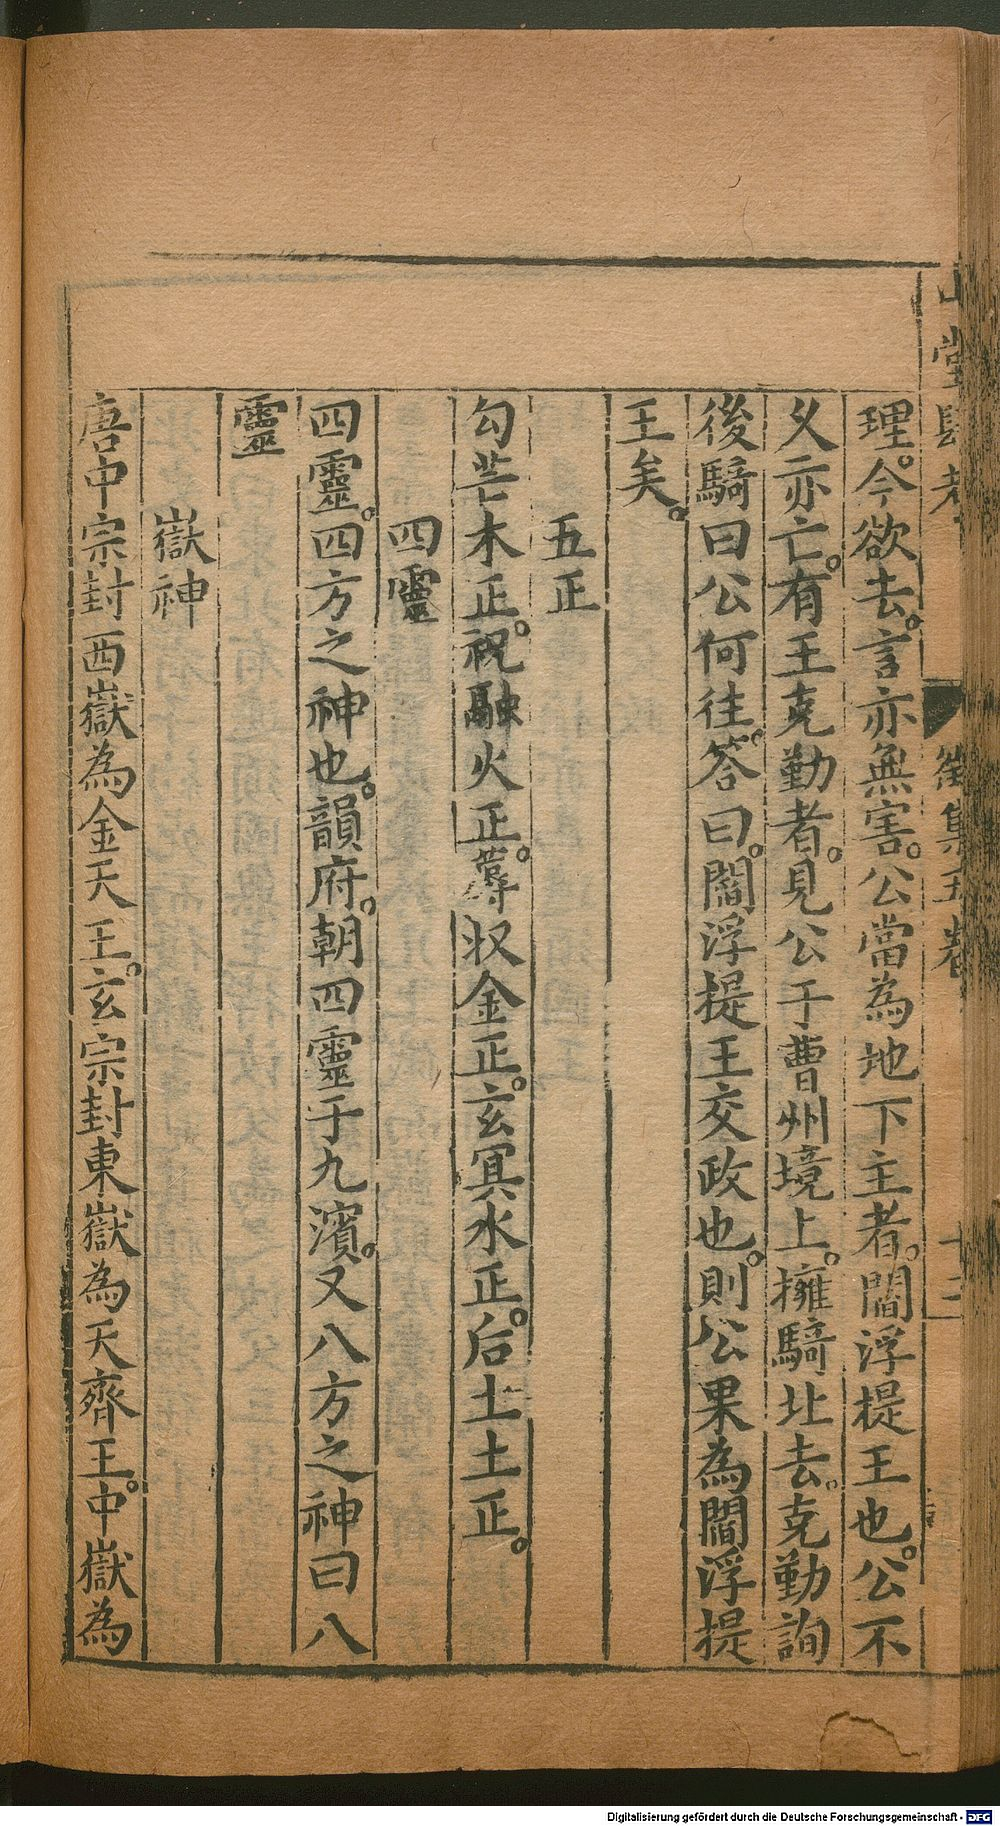 山堂肆考 徵集五卷 十三
理。今欲去。言亦無害。公當為地下主者。閻浮提王也。公不
乆亦亡。有王克勤者。見公于曹州境上。擁騎北去。克勤詢
後騎曰公何往。答曰。閻浮提王交政也。則公果為閻浮提
王矣。
五正
勾芒木正。祝融火正。蓐収金正。玄冥水正。后土土正。
四靈
四靈。四方之神也。韻府。朝四靈于九濱。又八方之神曰八
靈
嶽神
唐中宗封西嶽為金天王。玄宗封東嶽為天齊王。中嶽為
Digitalisierung gefördert durch die Deutsche Forschungsgemeinschaft - DFG